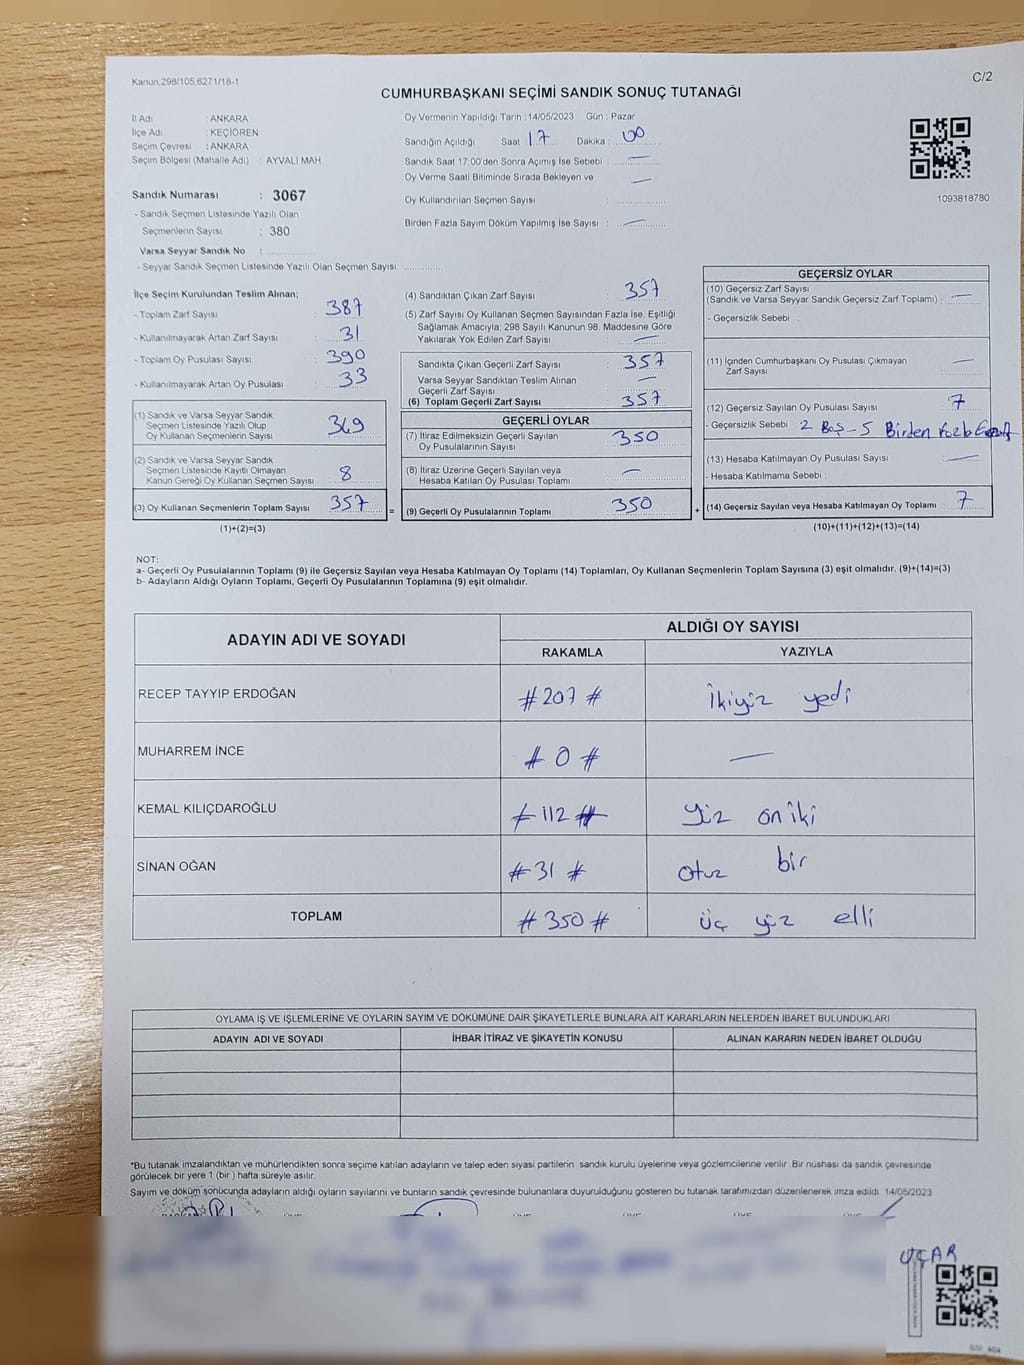 Kanun.298/105,6271/18-1
C/2
CUMHURBAŞKANI SEÇİMİ SANDIK SONUÇ TUTANAĞI
İl Adı : ANKARA
İlçe Adı : KEÇİÖREN
Seçim Çevresi : ANKARA
Seçim Bölgesi (Mahalle Adı) : AYVALI MAH.
Sandık Numarası : 3067
- Sandık Seçmen Listesinde Yazılı Olan
Seçmenlerin Sayısı : 380
Varsa Seyyar Sandık No :
- Seyyar Sandık Seçmen Listesinde Yazılı Olan Seçmen Sayısı:
Oy Vermenin Yapıldığı Tarih :14/05/2023 Gün : Pazar
Sandığın Açıldığı Saat 17 Dakika : 00
Sandık Saat 17:00'den Sonra Açımış İse Sebebi : —
Oy Verme Saati Bitiminde Sırada Bekleyen ve —
Oy Kullandırılan Seçmen Sayısı :
Birden Fazla Sayım Döküm Yapılmış İse Sayısı : —
1093818780
İlçe Seçim Kurulundan Teslim Alınan;
- Toplam Zarf Sayısı : 387
- Kullanılmayarak Artan Zarf Sayısı : 31
- Toplam Oy Pusulası Sayısı : 390
- Kullanılmayarak Artan Oy Pusulası : 33
(1) Sandık ve Varsa Seyyar Sandık
Seçmen Listesinde Yazılı Olup
Oy Kullanan Seçmenlerin Sayısı 349
(2) Sandık ve Varsa Seyyar Sandık
Seçmen Listesinde Kayıtlı Olmayan
Kanun Gereği Oy Kullanan Seçmen Sayısı 8
(3) Oy Kullanan Seçmenlerin Toplam Sayısı 357
(1)+(2)=(3)
=
(4) Sandıktan Çıkan Zarf Sayısı : 357
(5) Zarf Sayısı Oy Kullanan Seçmen Sayısından Fazla İse, Eşitliği
Sağlamak Amacıyla; 298 Sayılı Kanunun 98. Maddesine Göre
Yakılarak Yok Edilen Zarf Sayısı : —
Sandıkta Çıkan Geçerli Zarf Sayısı : 357
Varsa Seyyar Sandıktan Teslim Alınan
Geçerli Zarf Sayısı : —
(6) Toplam Geçerli Zarf Sayısı : 357
GEÇERLİ OYLAR
(7) İtiraz Edilmeksizin Geçerli Sayılan
Oy Pusulalarının Sayısı : 350
(8) İtiraz Üzerine Geçerli Sayılan veya
Hesaba Katılan Oy Pusulası Toplamı : —
(9) Geçerli Oy Pusulalarının Toplamı : 350
+
GEÇERSİZ OYLAR
(10) Geçersiz Zarf Sayısı
(Sandık ve Varsa Seyyar Sandık Geçersiz Zarf Toplamı) : —
- Geçersizlik Sebebi :
(11) İçinden Cumhurbaşkanı Oy Pusulası Çıkmayan
Zarf Sayısı : —
(12) Geçersiz Sayılan Oy Pusulası Sayısı : 7
- Geçersizlik Sebebi : 2 Boş - 5 Birden
(13) Hesaba Katılmayan Oy Pusulası Sayısı : —
- Hesaba Katılmama Sebebi :
(14) Geçersiz Sayılan veya Hesaba Katılmayan Oy Toplamı : 7
(10)+(11)+(12)+(13)=(14)
NOT:
a- Geçerli Oy Pusulalarının Toplamı (9) ile Geçersiz Sayılan veya Hesaba Katılmayan Oy Toplamı (14) Toplamları, Oy Kullanan Seçmenlerin Toplam Sayısına (3) eşit olmalıdır. (9)+(14)=(3)
b- Adayların Aldığı Oyların Toplamı, Geçerli Oy Pusulalarının Toplamına (9) eşit olmalıdır.
ADAYIN ADI VE SOYADI
ALDIĞI OY SAYISI
RAKAMLA YAZIYLA
RECEP TAYYİP ERDOĞAN #207# İkiyüz yedi
MUHARREM İNCE #0# —
KEMAL KILIÇDAROĞLU #112# Yüz oniki
SİNAN OĞAN #31# otuz bir
TOPLAM #350# üç yüz elli
OYLAMA İŞ VE İŞLEMLERİNE VE OYLARIN SAYIM VE DÖKÜMÜNE DAİR ŞİKAYETLERLE BUNLARA AİT KARARLARIN NELERDEN İBARET BULUNDUKLARI
ADAYIN ADI VE SOYADI İHBAR İTİRAZ VE ŞİKAYETİN KONUSU ALINAN KARARIN NEDEN İBARET OLDUĞU
*Bu tutanak imzalandıktan ve mühürlendikten sonra seçime katılan adayların ve talep eden siyasi partilerin sandık kurulu üyelerine veya gözlemcilerine verilir. Bir nüshası da sandık çevresinde
görülecek bir yere 1 (bir ) hafta süreyle asılır.
Sayım ve döküm sonucunda adayların aldığı oyların sayılarını ve bunların sandık çevresinde bulunanlara duyurulduğunu gösteren bu tutanak tarafımızdan düzenlenerek imza edildi. 14/05/2023
UÇAR